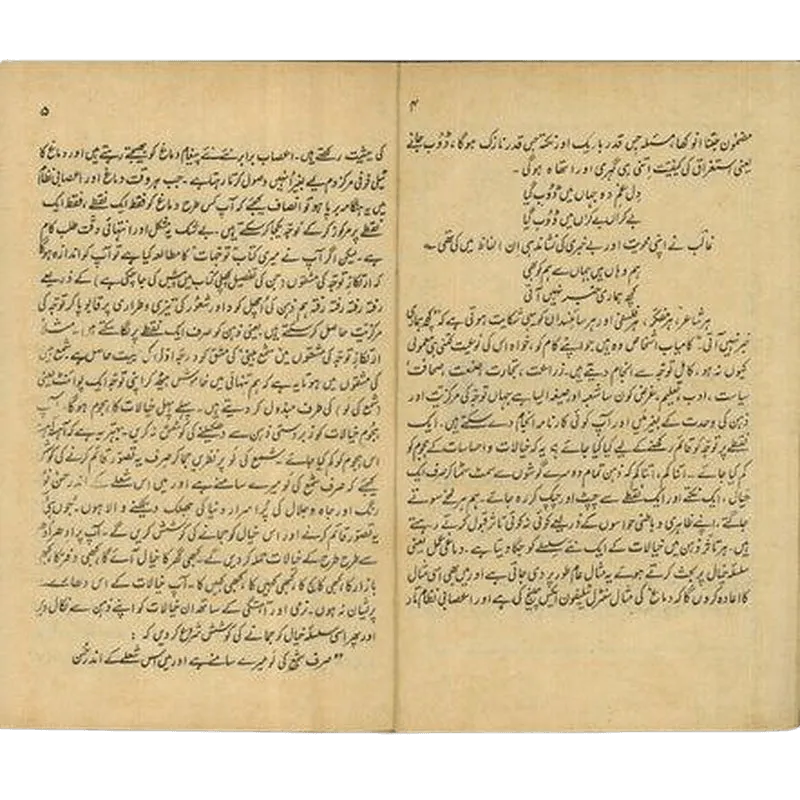 ۴
مضمون جتنا انوکھا، مسئلہ جس قدر باریک اور نکتہ جس قدر نازک ہوگا، ڈوب جانے
یعنی استغراق کی کیفیت اتنی ہی گہری اور اتھاہ ہوگی۔
دل غم دو جہاں میں ڈوب گیا
بے کراں بے کراں میں ڈوب گیا
غالب نے اپنی محویت اور بے خبری کی نشاندہی ان الفاظ میں کی تھی ؎
ہم وہاں ہیں جہاں سے ہم کو بھی
کچھ ہماری خبر نہیں آتی
ہر شاعر، ہر مفکر، ہر فلسفی اور ہر سائنسداں کو یہی شکایت ہوتی ہے کہ "کچھ ہماری
خبر نہیں آتی۔" کامیاب اشخاص وہ ہیں جو اپنے کام کو، خواہ اس کی نوعیت کتنی ہی معمولی
کیوں نہ ہو، کامل توجہ سے انجام دیتے ہیں۔ زراعت، تجارت، صنعت، صحافت،
سیاست، ادب، تعلیم، غرض کون سا شعبہ اور صیغہ ایسا ہے جہاں توجہ کی مرکزیت اور
ذہن کی وحدت کے بغیر میں اور آپ کوئی کارنامہ انجام دے سکتے ہیں۔ ایک
نقطے پر توجہ کو قائم رکھنے کے لیے کیا کیا جائے؟ یہ کہ خیالات و احساسات کے ہجوم کو
کم کیا جائے ۔۔ اتنا کم، اتنا کم کہ ذہن تمام دوسرے گوشوں سے سمٹ سمٹا کر صرف ایک
خیال، ایک نکتے اور ایک نقطے سے چپٹ اور چپک کر رہ جائے۔ ہم ہر لمحے سوتے
جاگتے، اپنے ظاہری و باطنی حواسوں کے ذریعے کوئی نہ کوئی تاثر قبول کرتے رہتے
ہیں۔ ہر تاثر ذہن میں خیالات کے ایک نئے سلسلے کو جگا دیتا ہے۔ دماغی عمل یعنی
سلسلۂ خیال پر بحث کرتے ہوئے یہ مثال عام طور پر دی جاتی ہے اور میں بھی اسی مثال
کا اعادہ کروں گا کہ دماغ کی مثال سنٹرل ٹیلیفون ایکس چینج کی ہے اور اعصابی نظام تار
۵
کی حیثیت رکھتے ہیں۔ اعصاب برابر نئے نئے پیغام دماغ کو بھیجتے رہتے ہیں اور دماغ کا
ٹیلی فونی مرکز دم لیے بغیر انہیں وصول کرتا رہتا ہے۔ جب ہر وقت دماغ اور اعصابی نظام
میں یہ ہنگامہ برپا ہو تو انصاف کیجئے کہ آپ کس طرح دماغ کو فقط ایک نقطے، فقط ایک
نقطے پر مرکوز کر کے توجہ یکجا کر سکتے ہیں۔ بے شک یہ مشکل اور انتہائی دقت طلب کام
ہے۔ لیکن اگر آپ نے میری کتاب "توجہات" کا مطالعہ کیا ہے تو آپ کو اندازہ ہوگا
کہ ارتکاز توجہ کی مشقوں (جن کی تفصیل پچھلی کتاب میں پیش کی جا چکی ہے) کے ذریعے
رفتہ رفتہ، رفتہ رفتہ ہم ذہن کی اچھل کود اور شعور کی تیزی و طراری پر قابو پا کر توجہ کی
مرکزیت حاصل کر سکتے ہیں، یعنی ذہن کو صرف ایک نقطے پر لگا سکتے ہیں۔ مثلاً
ارتکاز توجہ کی مشقوں میں "شمع بینی" کی مشق کو درجہ اول کی اہمیت حاصل ہے شمع بینی
کی مشقوں میں ہوتا یہ ہے کہ ہم تنہائی میں خاموش بیٹھ کر اپنی توجہ ایک پوائنٹ یعنی
(شمع کی لو) کی طرف مبذول کر دیتے ہیں۔ پہلے پہل خیالات کا ہجوم ہوگا۔ آپ
ہجوم خیالات کو زبردستی ذہن سے دھکیلنے کی کوشش نہ کریں۔ بہتر یہ ہے کہ آہستہ آہستہ
اس ہجوم کو کم کیا جائے۔ شمع کی لو پر نظریں جما کر صرف یہ تصور قائم کرنے کی کوشش
کیجئے کہ صرف شمع کی لو میرے سامنے ہے اور میں اس شعلے کے اندر حسن نور
رنگ اور جاہ و جلال کی پُر اسرار دنیا کی جھلک دیکھنے والا ہوں۔ جوں ہی
یہ تصور قائم کرنے اور اس خیال کو جمانے کی کوشش کریں گے۔ آپ پر ادھر ادھر
سے طرح طرح کے خیالات حملہ کر دیں گے۔ کبھی گھر کا خیال آئے گا، کبھی دفتر کا، کبھی
بازار کا، کبھی کالج کا، کبھی کہیں کا، کبھی کہیں کا۔ آپ خیالات کے اس دھارے سے
پریشان نہ ہوں۔ نرمی اور آہستگی کے ساتھ ان خیالات کو اپنے ذہن سے نکال دیں
اور پھر اسی سلسلۂ خیال کو جمانے کی کوشش شروع کر دیں کہ:
"صرف شمع کی لو میرے سامنے ہے اور میں اس شعلے کے اندر حسن